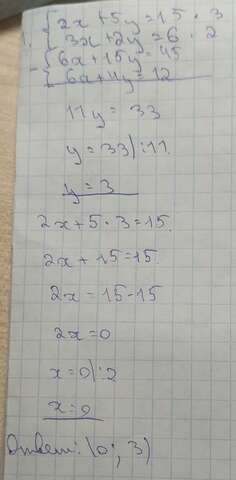 1. { 2x + 5y = 15 · 3
3x + 2y = 6 · 2
- { 6x + 15y = 45
6x + 4y = 12
11y = 33
y = 33 | : 11
y = 3
2x + 5 · 3 = 15
2x + 15 = 15
2x = 15 - 15
2x = 0
x = 0 | : 2
x = 0
Ответ: (0 ; 3)